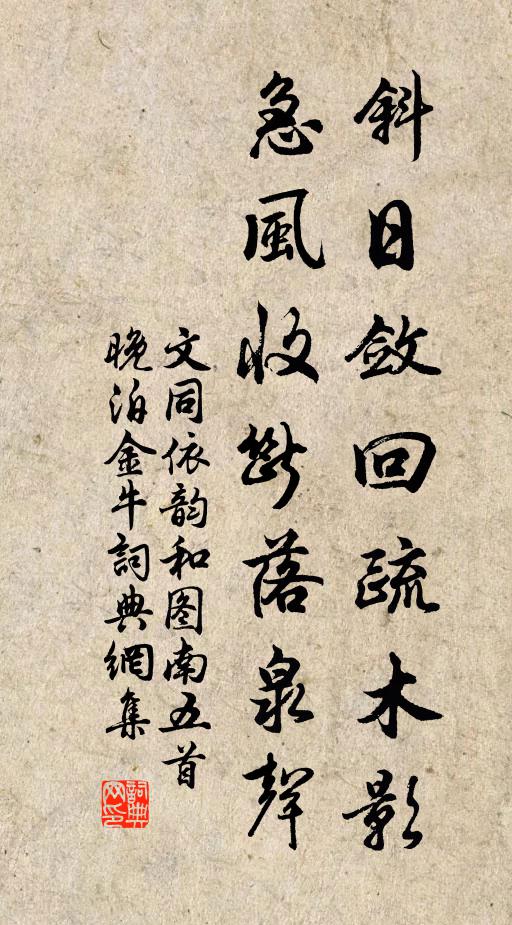 斜日斂回疏木影
急風收斷落泉聲
文同依韵和图南五首
晚泊金牛詞典網集
詞典网印